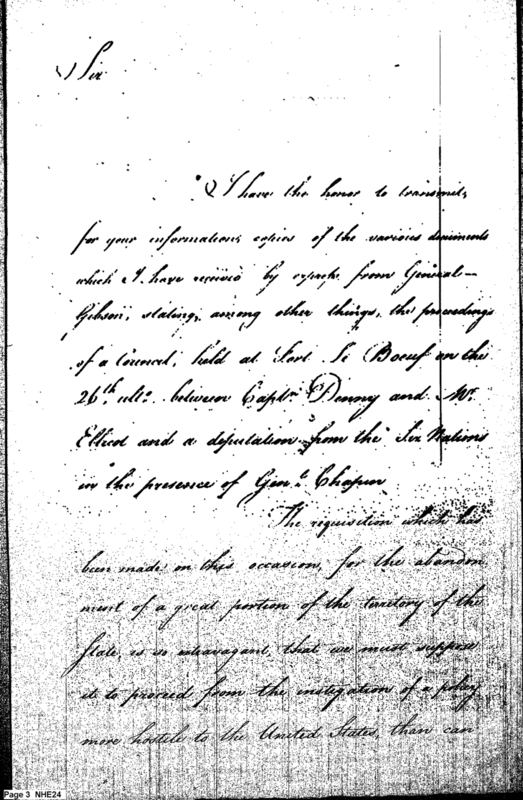 Sir
I have the honor to transmit,
for your information, copies of the various documents
which I have received by express from General
Gibson, stating, among other things, the proceedings
of a Council, held at Fort Le Boeuf on the
26th ulto. between Captn. Denny and Mr.
Ellicot and a deputation from the Six Nations
in the presence of Genl. Chapin
The requisition which has
been made on this occasion, for the abandon
ment of a great portion of the territory of the
State, is so extravagant, that we must suppose
it to proceed from the instigation of a policy
more hostile to the United States, than can
Page 3 NHE24